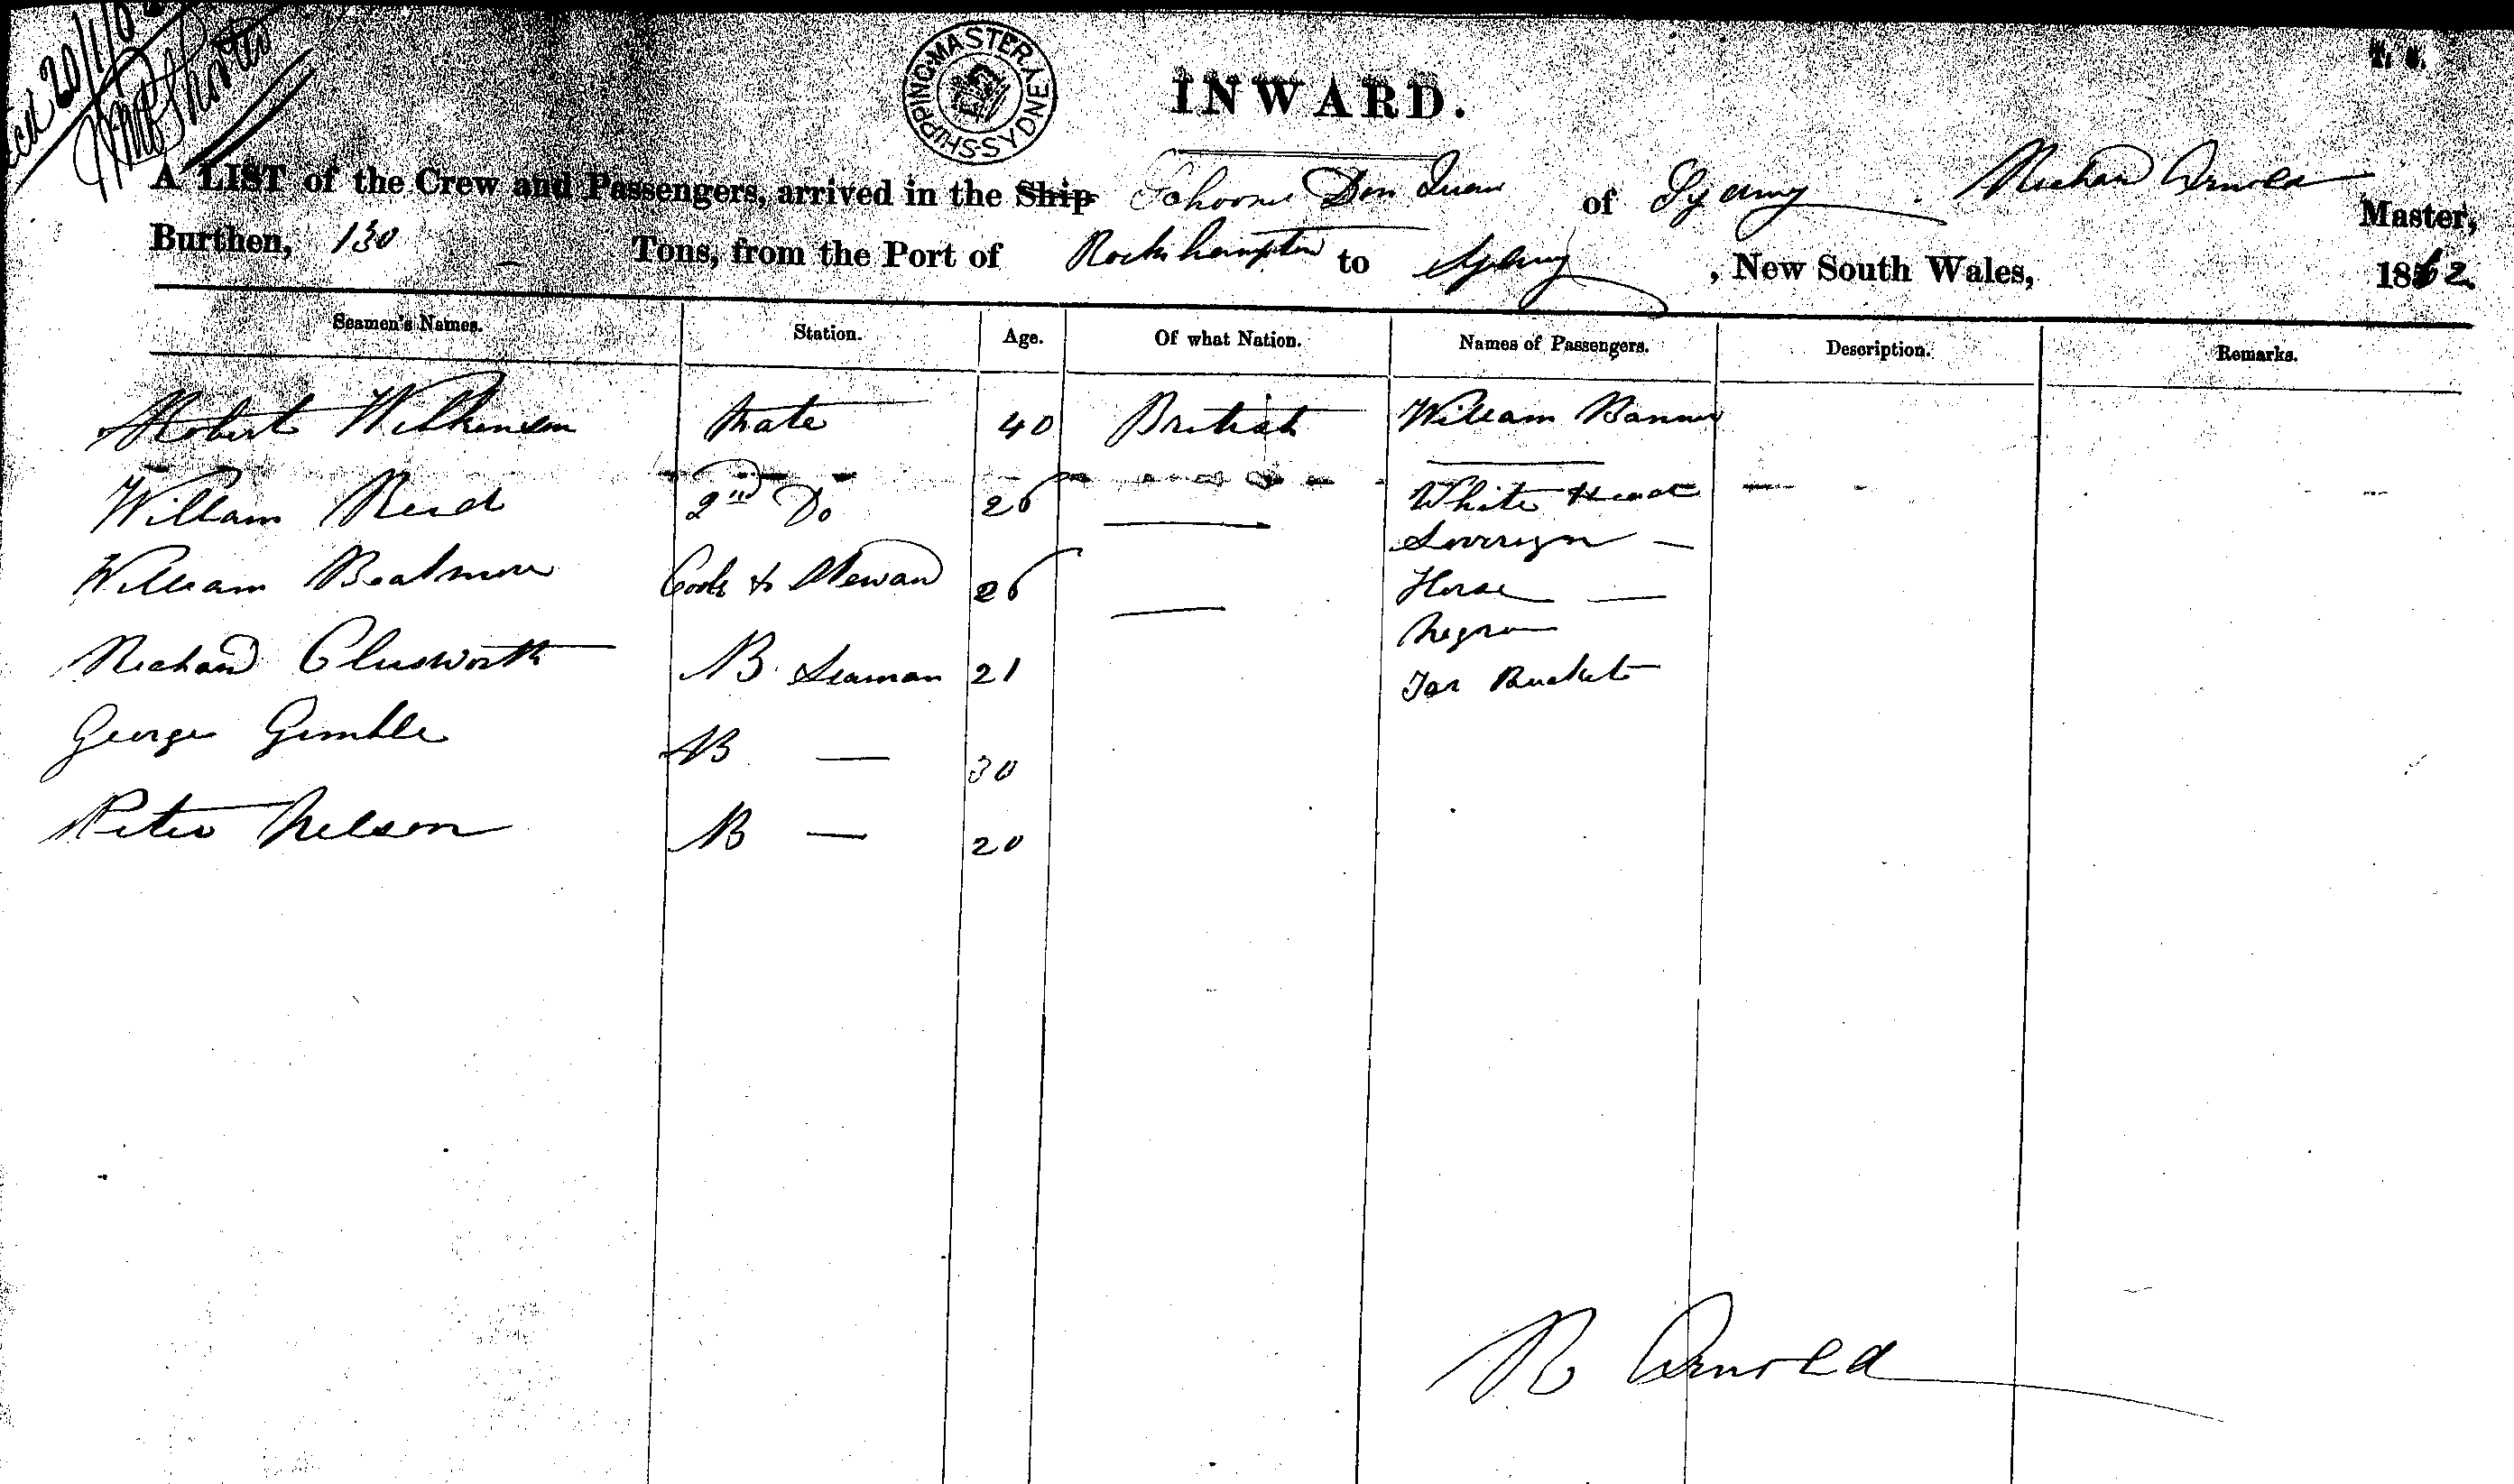 20/1/62
SHIPPING MASTER SYDNEY
INWARD.
A LIST of the Crew and Passengers, arrived in the Ship Schooner Don Juan of Sydney Richard Arnold Master,
Burthen, 130 Tons, from the Port of Rockhampton to Sydney, New South Wales, 1862
Seamen's Names. Station. Age. Of what Nation. Names of Passengers. Description. Remarks.
Robert Wilkinson Mate 40 British William Banner
William Reid 2nd Do 26 White Head
Soverign
William Beatmore Cook & Steward 26 Horse
Negro
Richard Clusworth AB Seaman 21 Tar Bucket
George Gimble AB 30
Peter Nelson AB 20
R Arnold